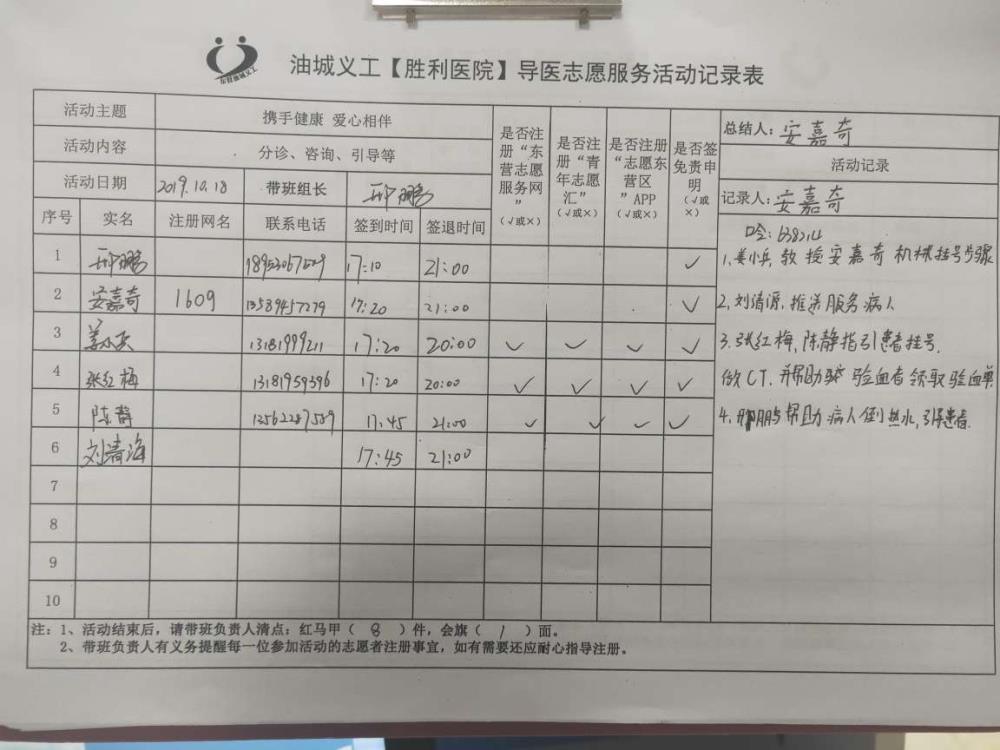 东营油城义工
油城义工【胜利医院】导医志愿服务活动记录表
活动主题 携手健康 爱心相伴
活动内容 分诊、咨询、引导等
活动日期 2019.10.18 带班组长 邢鹏
序号 实名 注册网名 联系电话 签到时间 签退时间
是否注册“东营志愿服务网” (√或×)
是否注册“青年志愿汇” (√或×)
是否注册“志愿东营区”APP (√或×)
是否签免责申明 (√或×)
1 邢鹏 17:10 21:00 ✓
2 安嘉奇 1609 13589457279 17:20 21:00 ✓
3 姜小兵 13181999211 17:20 20:00 ✓ ✓ ✓ ✓
4 张红梅 13181959396 17:20 20:00 ✓ ✓ ✓ ✓
5 陈静 13562287509 17:45 21:00 ✓ ✓ ✓ ✓
6 刘清海 17:45 21:00
7
8
9
10
总结人：安嘉奇
活动记录
记录人：安嘉奇
1.姜小兵,教授安嘉奇机械挂号步骤
2.刘清源,推送服务病人
3.张红梅,陈静指引患者挂号.
做CT,并帮助 验血者领取验血单
4.邢鹏帮助病人倒热水,引导患者.
注：1、活动结束后，请带班负责人清点：红马甲（ 8 ）件，会旗（ 1 ）面。
2、带班负责人有义务提醒每一位参加活动的志愿者注册事宜，如有需要还应耐心指导注册。